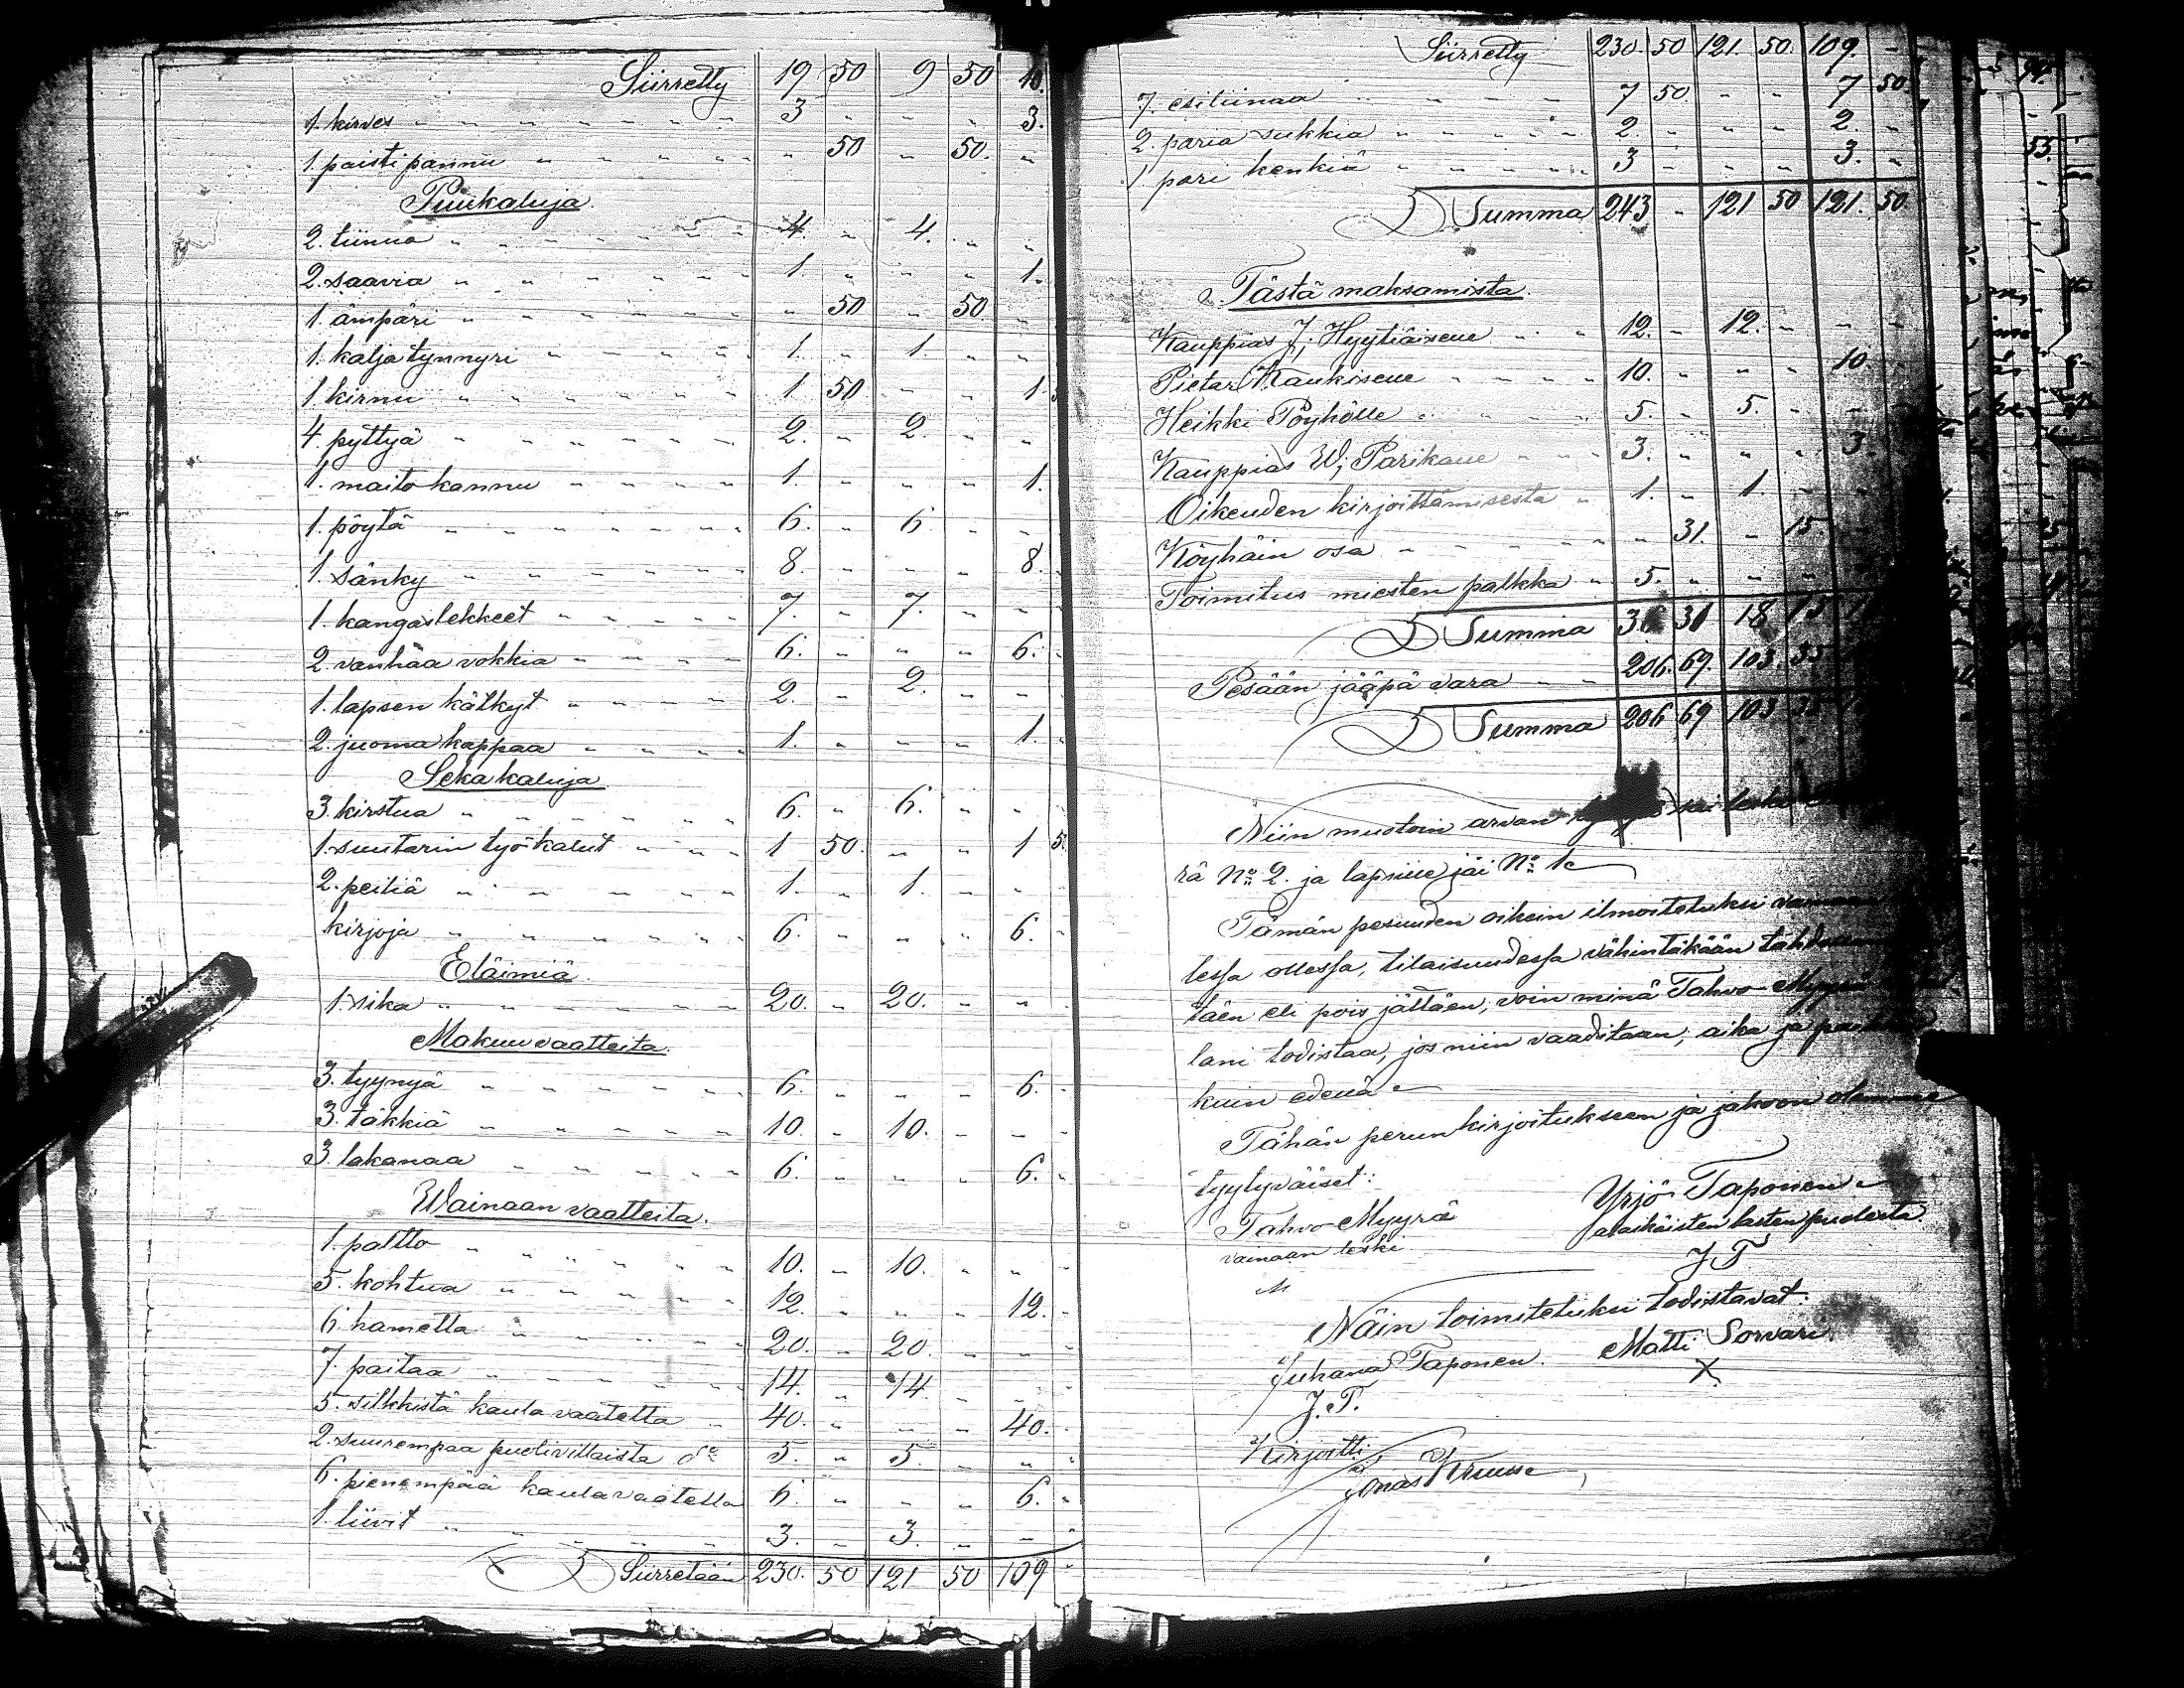 Siirretty 19 50 9 50 10.
1. kirves " 3 " " " 3.
1. paistipannu " " 50 " 50. "
Puukaluja.
2. tiinua " 4. " 4. " "
2. saavia " 1. " " " 1.
1. ämpäri " " 50 " 50 "
1. kaljatynnyri " 1. " 1. " "
1. kirnu " 1. 50 " " 1.
4. pyttyä " 2. " 2. " "
1. maito kannu " 1. " " " 1.
1. pöytä " 6. " 6. " "
1. sänky " 8. " " " 8.
1. kangaslekkeet " 7. " 7. " "
2. vanhaa vokkia " 6. " " " 6.
1. lapsen kätkyt " 2. " 2. " "
2. juoma kappaa " 1. " " " 1.
Seka kaluja
3. kirstua " 6. " 6. " "
1. suutarin työkalut " 1 50. " " 1 5
2. peiliä " 1. " 1. " "
kirjoja " 6. " " " 6.
Eläimiä.
1. sika " 20. " 20. " "
Makuuvaatteita.
3. tyynyä " 6. " " " 6.
3. täkkiä " 10. " 10. " "
3. lakanaa " 6. " " " 6.
Wainaan vaatteita.
1. paltto " 10. " 10. " "
5. kohtua " 12. " " " 12.
6. hametta " 20. " 20. " "
7. paitaa " 14. " 14. " "
5. silkkistä kaulavaatetta " 40. " " " 40.
2. suurempaa puolivillaista do 5. " 5. " "
6. pienempää kaulavaatetta 6. " " " 6.
1. liivit " 3. " 3. " "
Siirretään 230. 50 121 50 109
Siirretty 230. 50 121. 50. 109.
7. esiliinaa " 7 50. " " 7 50.
2. paria sukkia " 2. " " " 2. "
1 pari kenkiä " 3 " " " 3. "
Summa 243 " 121 50 121. 50.
Tästä maksamista.
Kauppias J; Hyytiäisene " 12. " 12. " " "
Pietar Kaukisene " 10. " " " 10.
Heikki Pöyhölle " 5. " 5. " "
Kauppias W; Parikane " 3. " " " 3.
Oikeuden kirjoittamisesta " 1. " 1. "
Köyhäin osa " " 31. " 15.
Toimitus miesten palkka " 5. " " "
Summa 36 31 18 15
Pesään jääpä vara " 206. 69. 103. 35.
Summa 206 69 103 35
Niin muotoin arvan
rä No 2. ja lapsiue jäi No 1
Tämän pesuuden oikein ilmoitetuksi
lessa ollessa, tilaisuudessa vähintäkään
täen eli pois jättäen, voin minä Tahvo Myyrä
lani todistaa, jos niin vaaditaan, aika ja paikka
kuin edellä
Tähän perunkirjoitukseen ja jakoon olemme
tyytyväiset:
Tahvo Myyrä Yrjö Taponen
vainaan leski alaikäisten lasten puolesta.
M J T
Näin toimitetuksi todistavat:
Juhana Taponen. Matti Sorvari.
J. T. X
Kirjoitti:
Jonas Kruuse